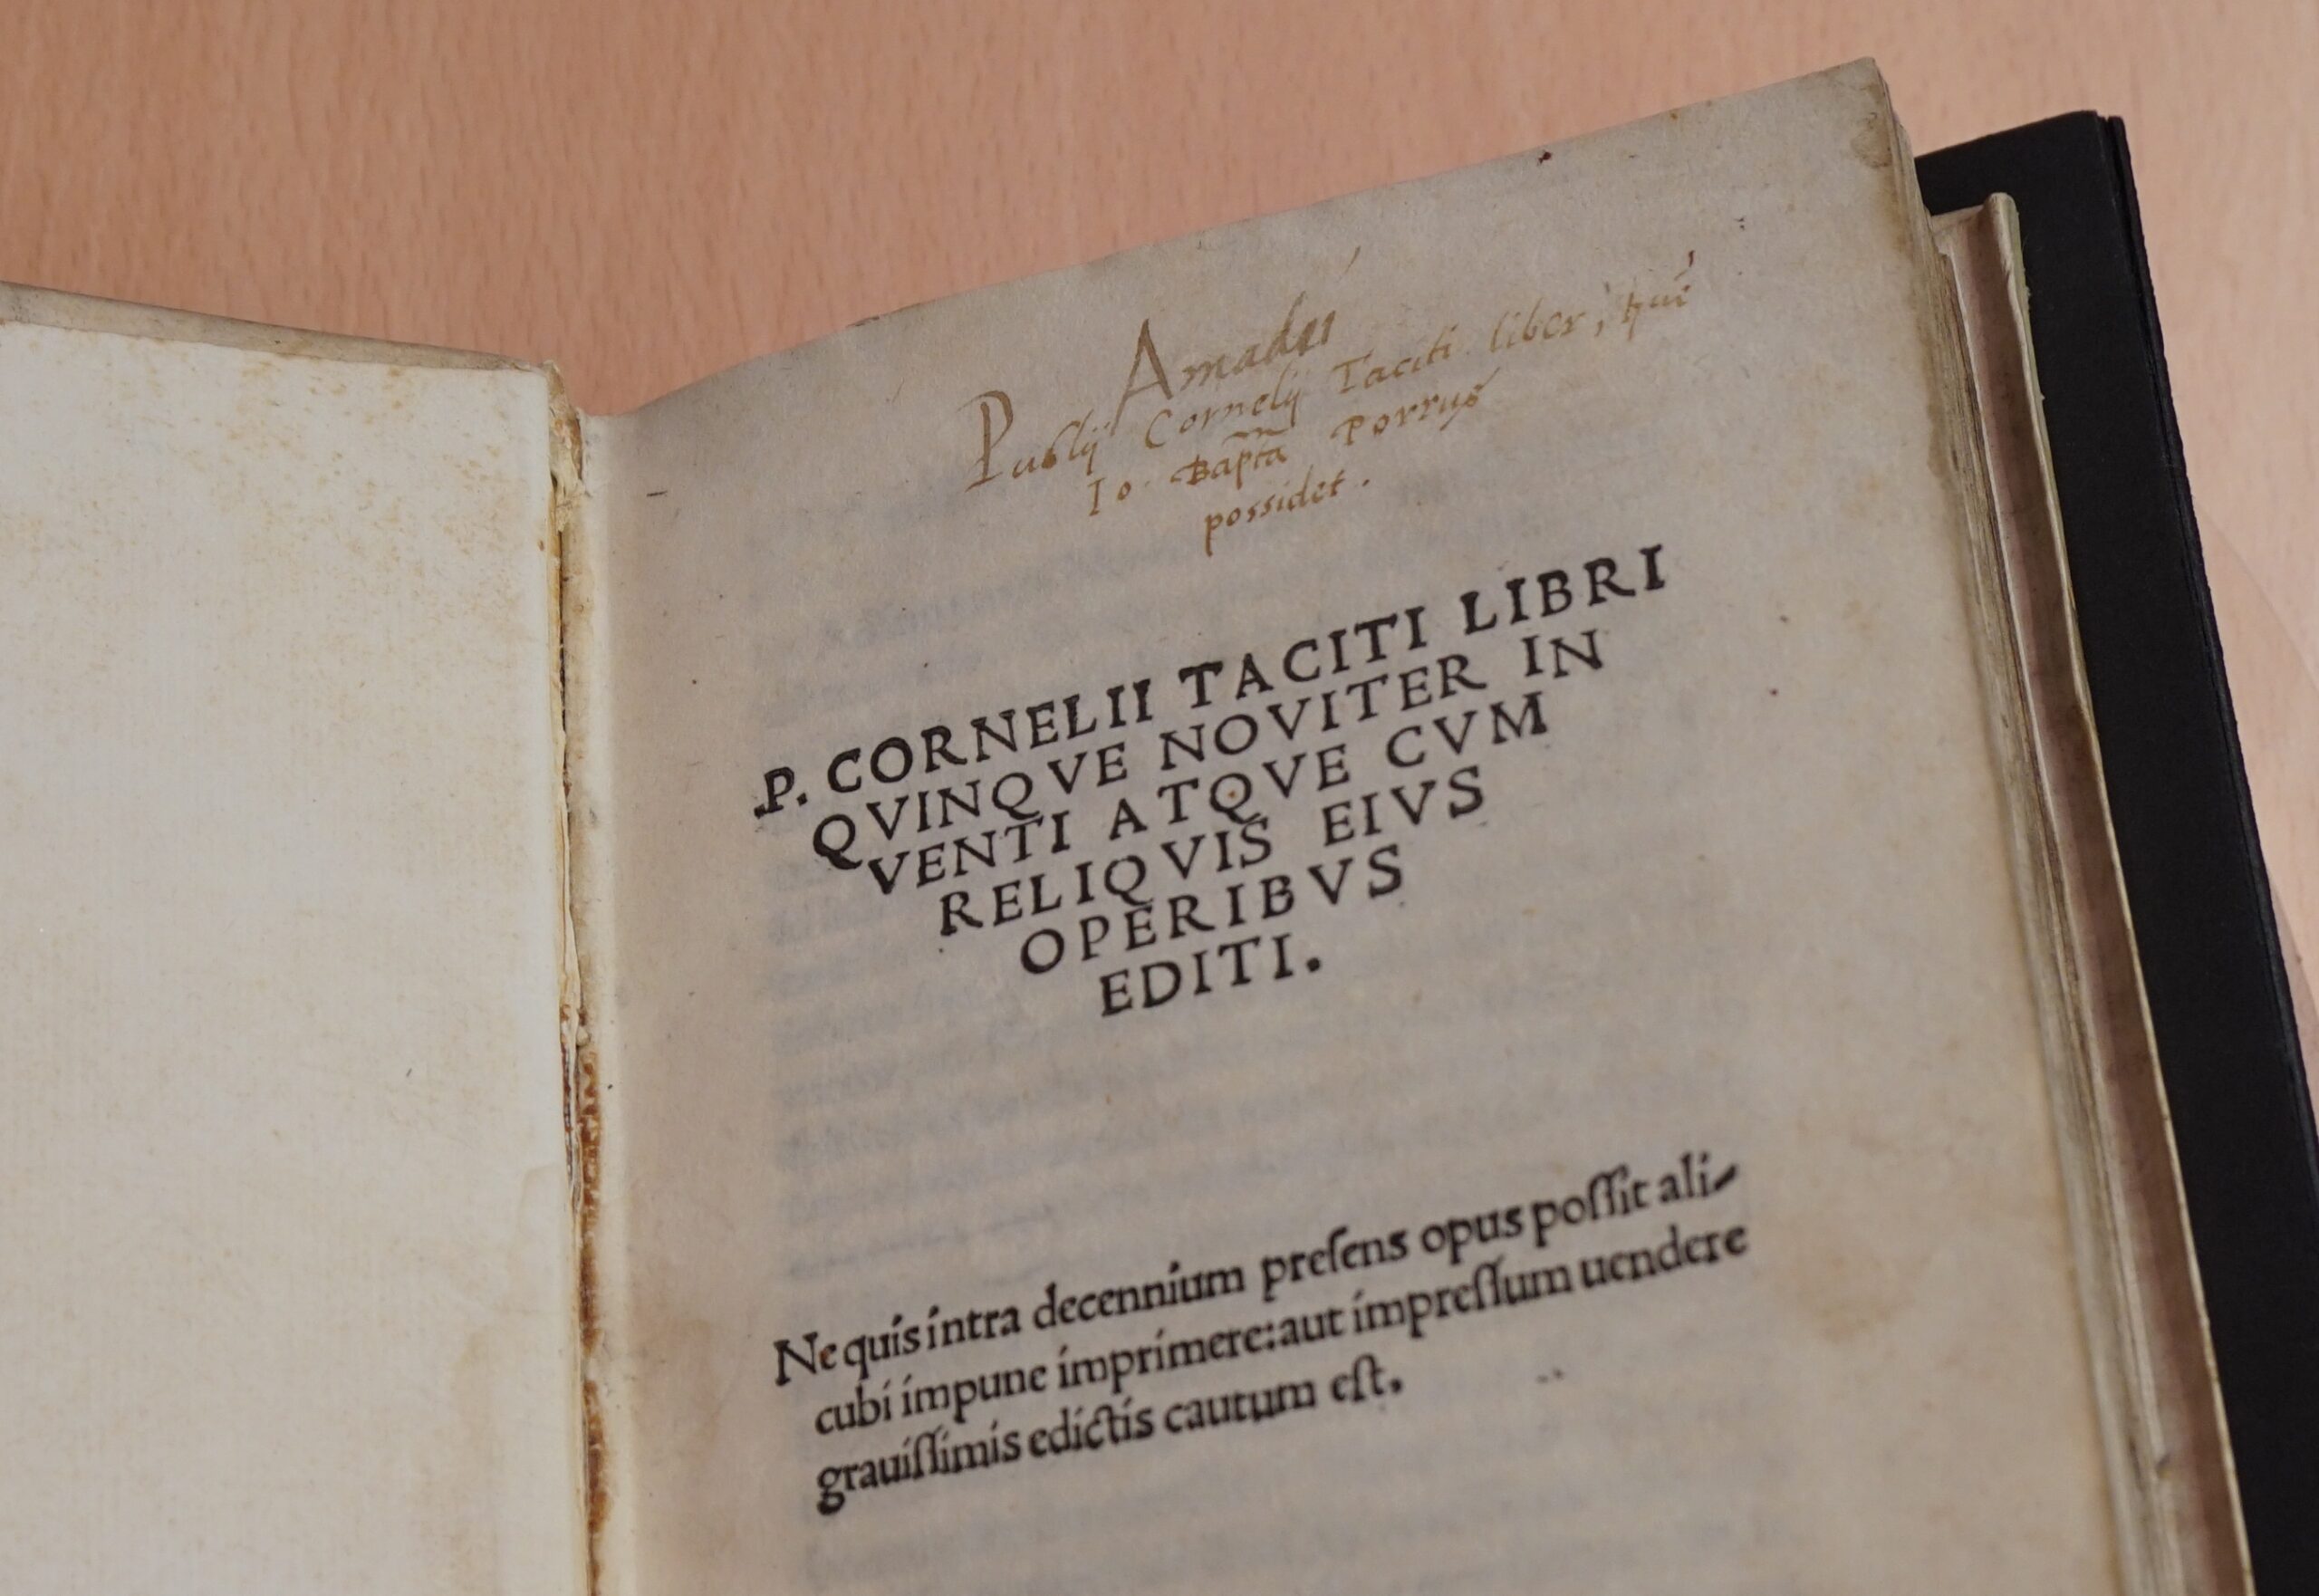 Amadei
Publij Cornelij Taciti liber, què
Io. Bapta Porrus
possidet.
P. CORNELII TACITI LIBRI
QVINQVE NOVITER IN
VENTI ATQVE CVM
RELIQVIS EIVS
OPERIBVS
EDITI.
Ne quis intra decennium preſens opus poſſit ali-
cubi impune imprimere: aut impreſſum uendere
grauiſſimis edictis cautum eſt.